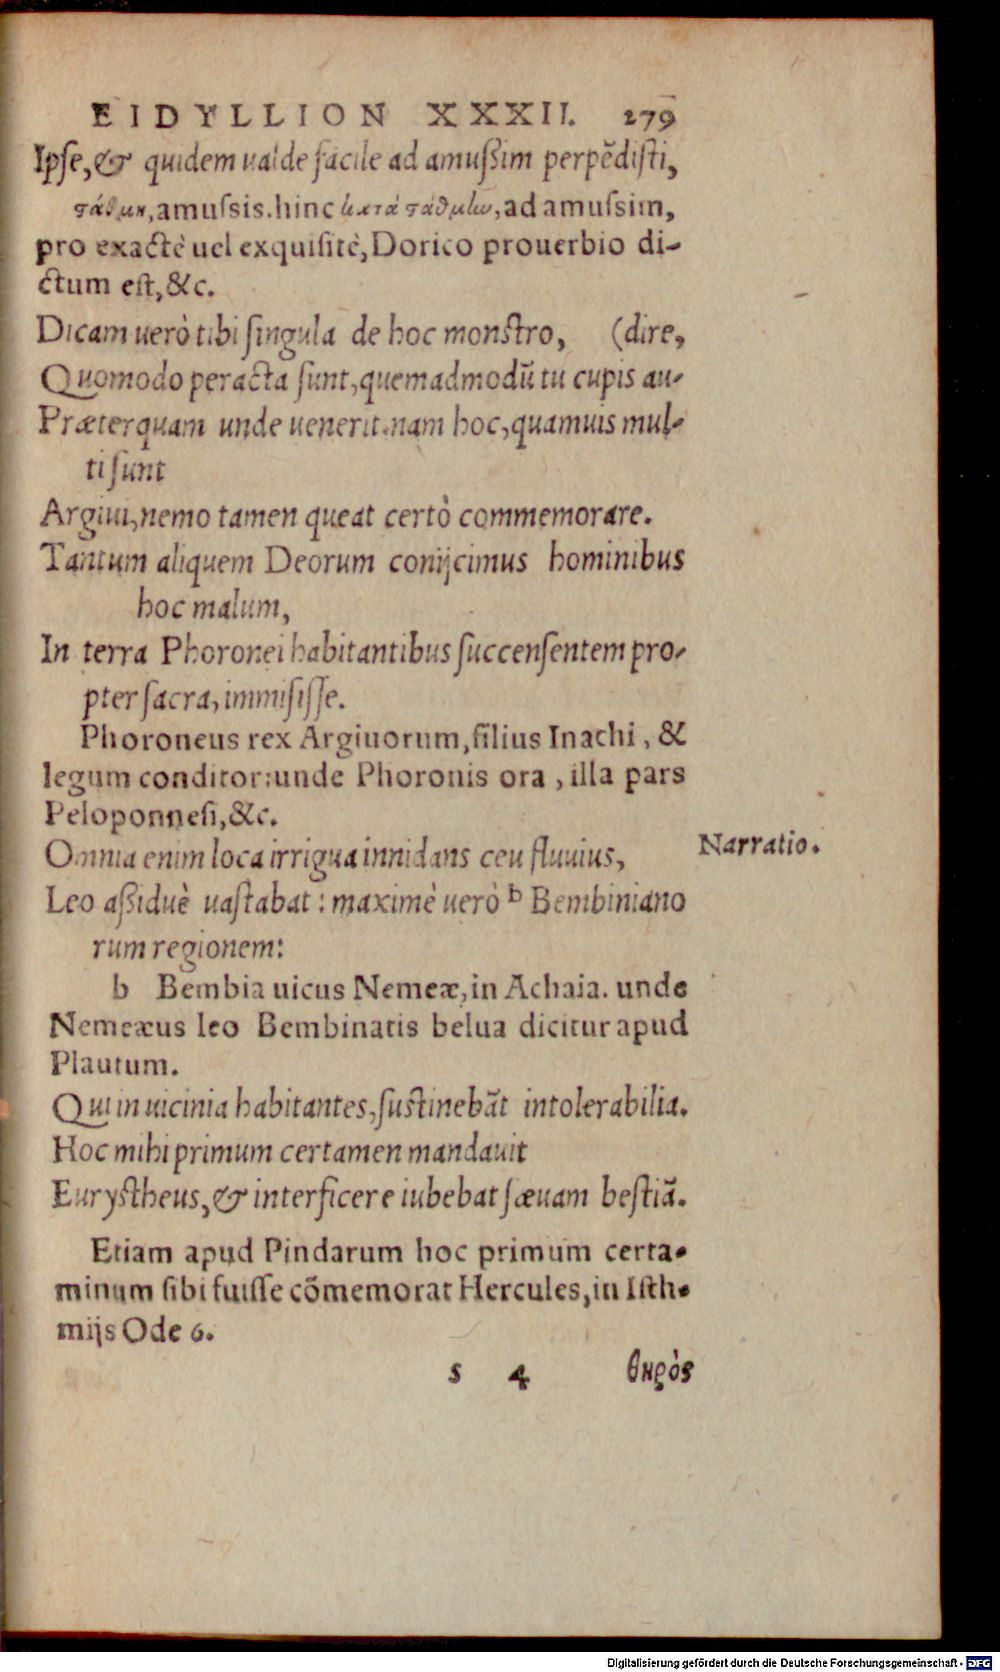 EIDYLLION XXXII. 279
Ipſe, & quidem ualde facile ad amußim perpẽdiſti,
ϛάθμη, amuſsis. hinc κατὰ ϛάθμην, ad amuſsim,
pro exactè uel exquiſitè, Dorico prouerbio di-
ctum eſt, &c.
Dicam uerò tibi ſingula de hoc monſtro, (dire,
Quomodo peracta ſunt, quemadmodũ tu cupis au-
Præterquam unde uenerit. nam hoc, quamuis mul-
ti ſunt
Argiui, nemo tamen queat certò commemorare.
Tantum aliquem Deorum conijcimus hominibus
hoc malum,
In terra Phoronei habitantibus ſuccenſentem pro-
pter ſacra, immiſiſſe.
Phoroneus rex Argiuorum, filius Inachi, &
legum conditor: unde Phoronis ora, illa pars
Peloponneſi, &c.
Omnia enim loca irrigua innidans ceu fluuius,
Narratio.
Leo aßiduè uaſtabat: maximè uerò b Bembiniano
rum regionem:
b Bembia uicus Nemeæ, in Achaia. unde
Nemeæus leo Bembinatis belua dicitur apud
Plautum.
Qui in uicinia habitantes, ſuſtinebãt intolerabilia.
Hoc mihi primum certamen mandauit
Euryſtheus, & interficere iubebat ſæuam beſtiã.
Etiam apud Pindarum hoc primum certa-
minum ſibi fuiſſe cõmemorat Hercules, in Iſth-
mijs Ode 6.
s 4 θηρὸς
Digitalisierung gefördert durch die Deutsche Forschungsgemeinschaft - DFG